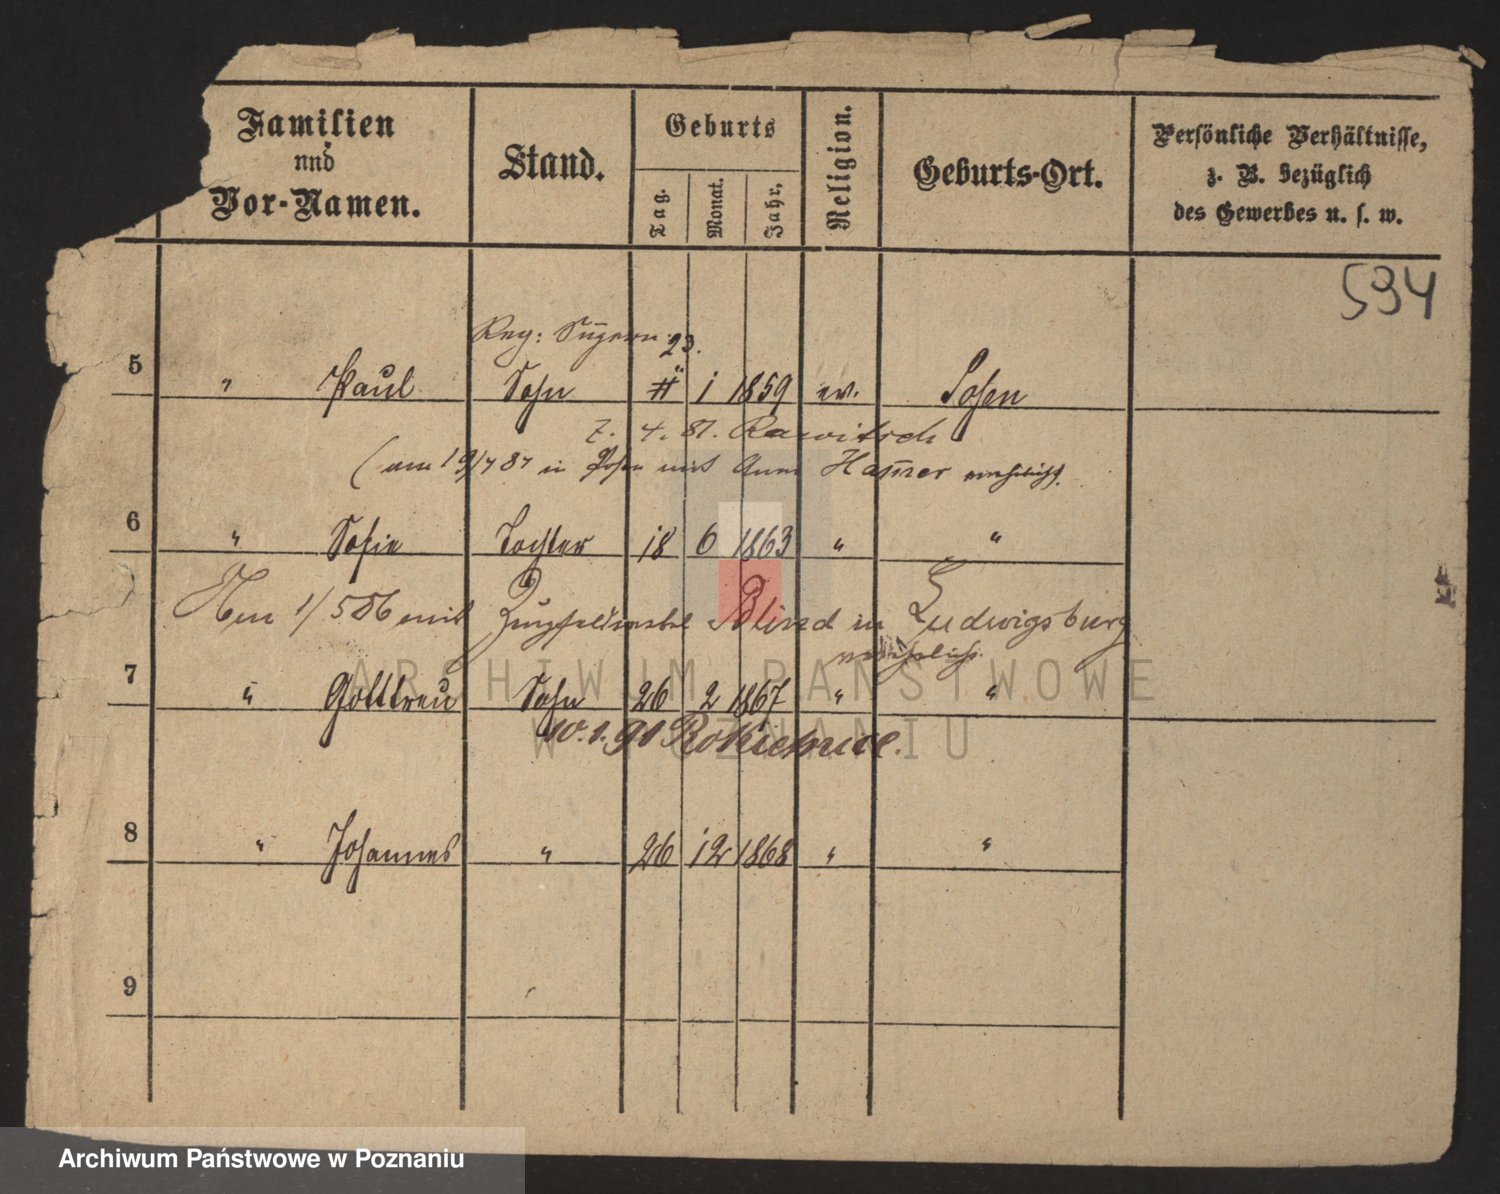 Familien
und
Vor-Namen.
Stand.
Geburts
Tag.
Monat.
Jahr.
Religion.
Geburts-Ort.
Persönliche Verhältnisse,
z. B. bezüglich
des Gewerbes u. s. w.
534
Reg:
23.
5 " Paul Sohn 11 1 1859 ev. Posen
7. 4. 87. Rawitsch
(am 19/4 87 in Posen mit Anna verehelicht.
6 " Sofie Tochter 18 6 1863 " "
Am 1/5 86 mit Blind in Ludwigsburg
verehelicht.
7 " Gottlreu Sohn 26 2 1867 " "
10.1.91
8 " Johannes " 26 12 1868 " "
9
ARCHIWUM PAŃSTWOWE
W POZNANIU
Archiwum Państwowe w Poznaniu